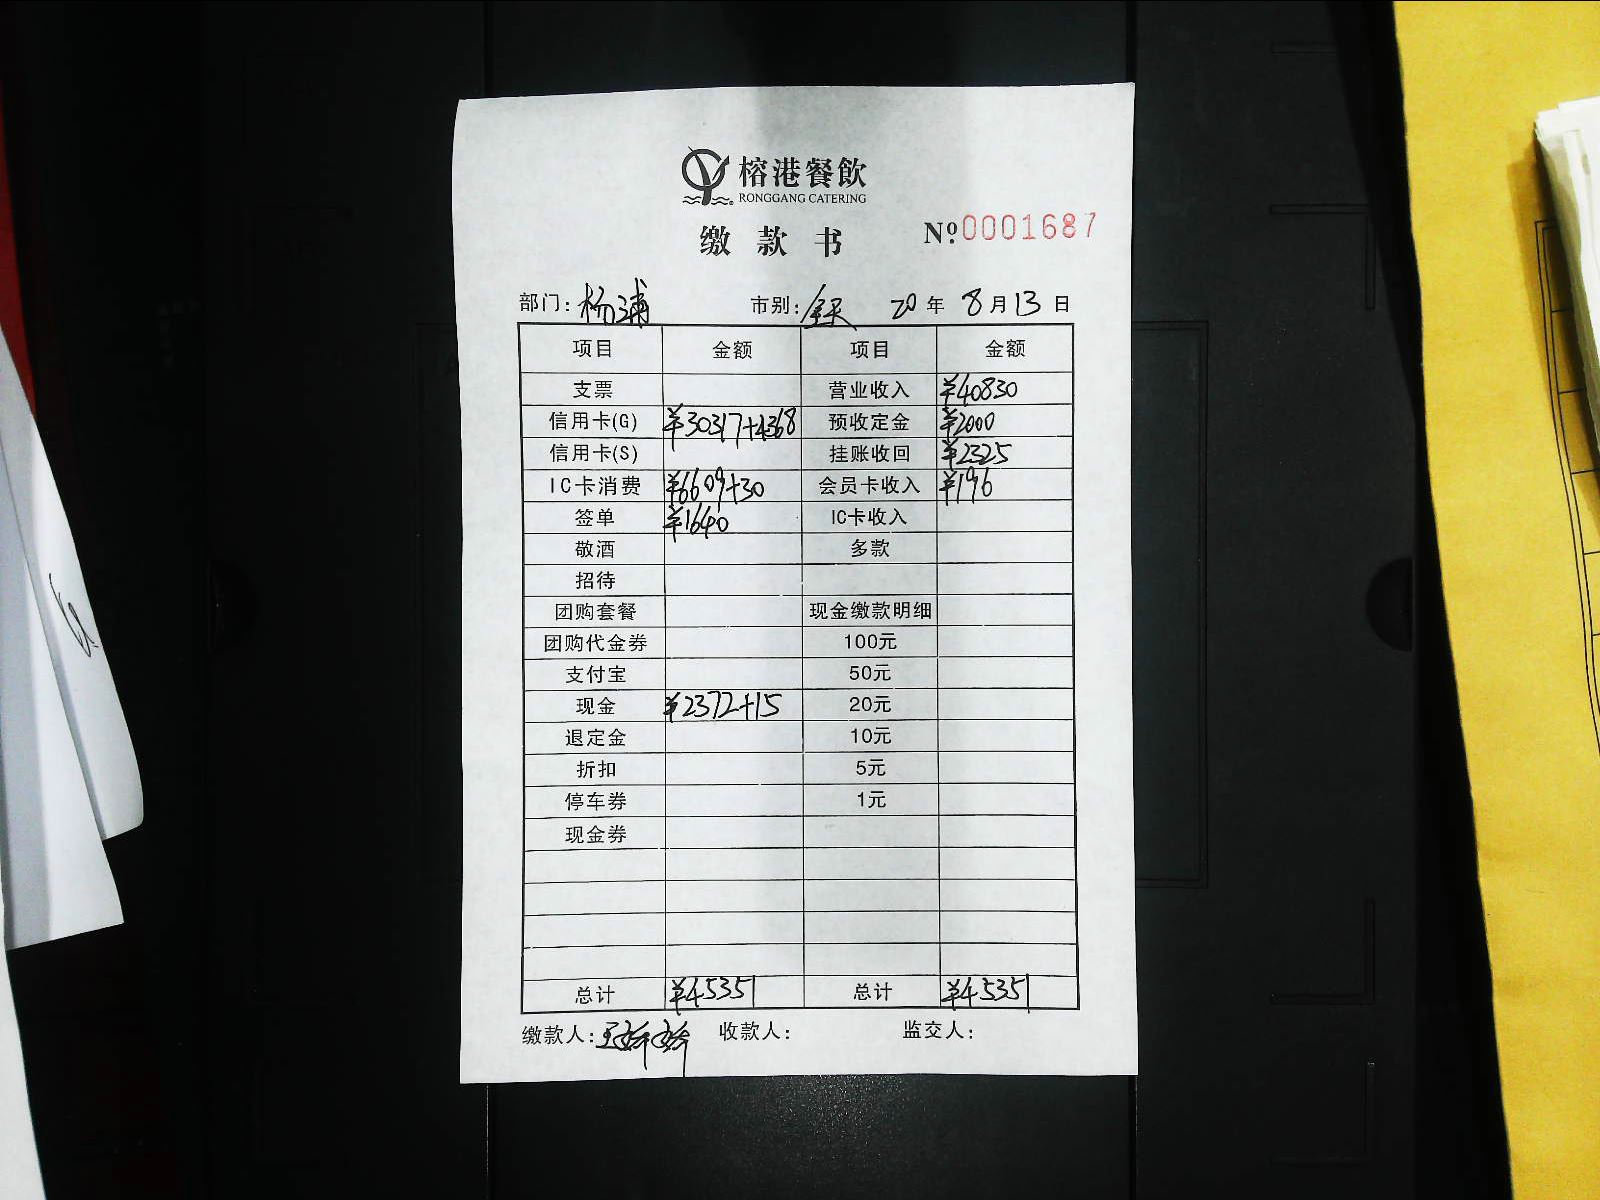 榕港餐飲
RONGGANG CATERING
缴款书 Nº:0001687
部门:杨浦 市别:全天 20年8月13日
项目 金额 项目 金额
支票 营业收入 ¥40830
信用卡(G) ¥30317+4368 预收定金 ¥2000
信用卡(S) 挂账收回 ¥2325
IC卡消费 ¥6609+30 会员卡收入 ¥196
签单 ¥1640 IC卡收入
敬酒 多款
招待
团购套餐 现金缴款明细
团购代金券 100元
支付宝 50元
现金 ¥2372+15 20元
退定金 10元
折扣 5元
停车券 1元
现金券
总计 ¥45351 总计 ¥45351
缴款人: 收款人: 监交人: